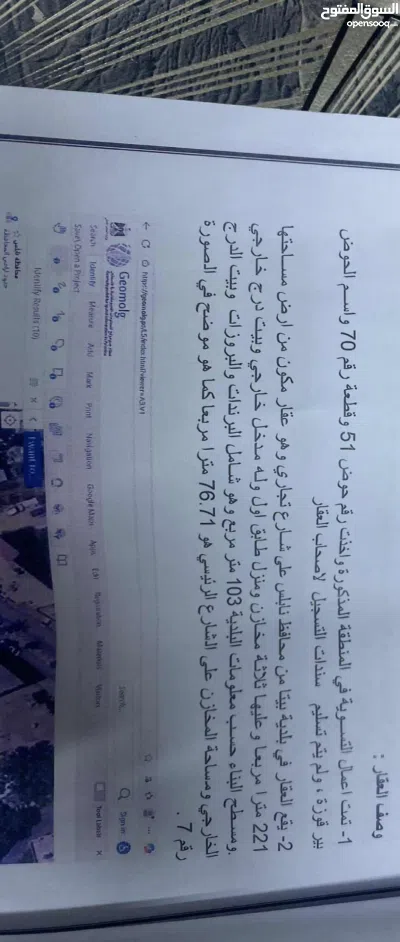 السوق المفتوح
opensooq.com
وصف العقار :
1- تمت اعمال التسوية في المنطقة المذكورة واخذت رقم حوض 51 وقطعة رقم 70 واسم الحوض
بير قوزة ، ولم يتم تسليم سندات التسجيل لاصحاب العقار
2- يقع العقار في بلدية بيتا من محافظ نابلس على شارع تجاري وهو عقار مكون من ارض مساحتها
221 مترا مربعا وعليها ثلاثة مخازن ومنزل طابق اول وله مدخل خارجي وبيت درج خارجي
.ومسطح البناء حسب معلومات البلدية 103 متر مربع وهو شامل البرندات والبروزات وبيت الدرج
الخارجي ومساحة المخازن على الشارع الرئيسي هو 76.71 مترا مربعا كما هو موضح في الصورة
رقم 7 .
Search
Sign in
Geomolg
Search Identify Measure Add Mark Print Navigation Google Maps Apps Edit Registration
Tool Labels
Save\Open a Project
Identify Results (10)
I want to...
محافظة نابلس